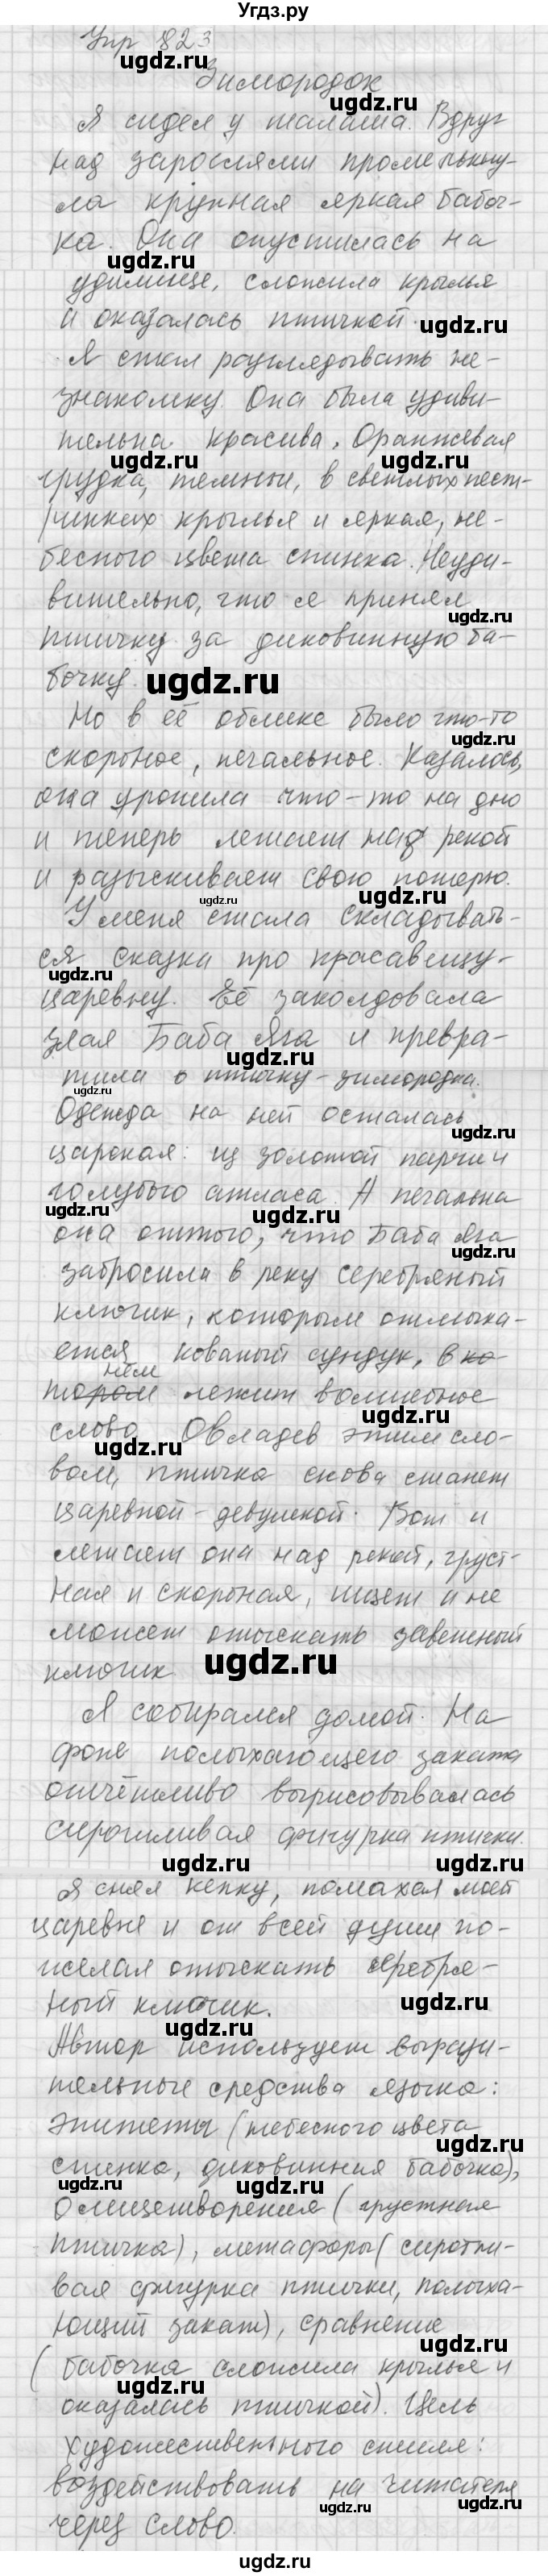 Угдз.ру
Упр 823
ugdz.ru
Зимородок
ugdz.ru
Я сидел у шалаша. Вдруг
над зарослями промелькну-
ла крупная яркая бабоч-
ка. Она опустилась на
ugdz.ru
удилище, сложила крылья
и оказалась птичкой.
ugdz.ru
Я стал разглядывать не-
знакомку. Она была удиви-
тельна красива. Оранжевая
ugdz.ru ugdz.ru
грудка, темные, в светлых пест-
ринках крылья и яркая, не-
бесного цвета спинка. Неуди-
вительно, что я принял
ugdz.ru
птичку за диковинную ба-
бочку.
ugdz.ru
Но в её облике было что-то
ugdz.ru
скорбное, печальное. Казалось,
она уронила что-то на дно
и теперь летает над рекой
и разыскивает свою потерю.
ugdz.ru ugdz.ru
У меня стала складывать-
ся сказка про красавицу-
ugdz.ru
царевну. Её заколдовала
злая Баба Яга и превра-
ugdz.ru
тила в птичку-зимородка.
ugdz.ru
Одежда на ней осталась
ugdz.ru
царская: из золотой парчи и
голубого атласа. А печальна
ugdz.ru ugdz.ru
она оттого, что Баба Яга
ugdz.ru
забросила в реку серебряный
ключик, которым отмыка-
ется кованый сундук, в ко-
нём
тором лежит волшебное
ugdz.ru
слово. Овладев этим сло-
ugdz.ru
вом, птичка снова станет
царевной-девушкой. Вот и
летает она над рекой, груст-
ная и скорбная, ищет и не
может отыскать заветный
ключик
ugdz.ru
Я собирался домой. На
фоне полыхающего заката
отчётливо вырисовывалась
сиротливая фигурка птички.
ugdz.ru ugdz.ru
Я снял кепку, помахал моей
царевне и от всей души по-
желал отыскать серебря-
ный ключик.
ugdz.ru
ugdz.ru
Автор использует вырази-
тельные средства языка:
эпитеты (небесного цвета
ugdz.ru
спинка, диковинная бабочка),
ugdz.ru
олицетворения (грустная
птичка), метафоры (сиротли-
вая фигурка птички, полыха-
ющий закат), сравнение
ugdz.ru
(бабочка сложила крылья и
ugdz.ru
оказалась птичкой). Цель
художественного стиля:
воздействовать на читателя
ugdz.ru ugdz.ru
через слово.
ugdz.ru